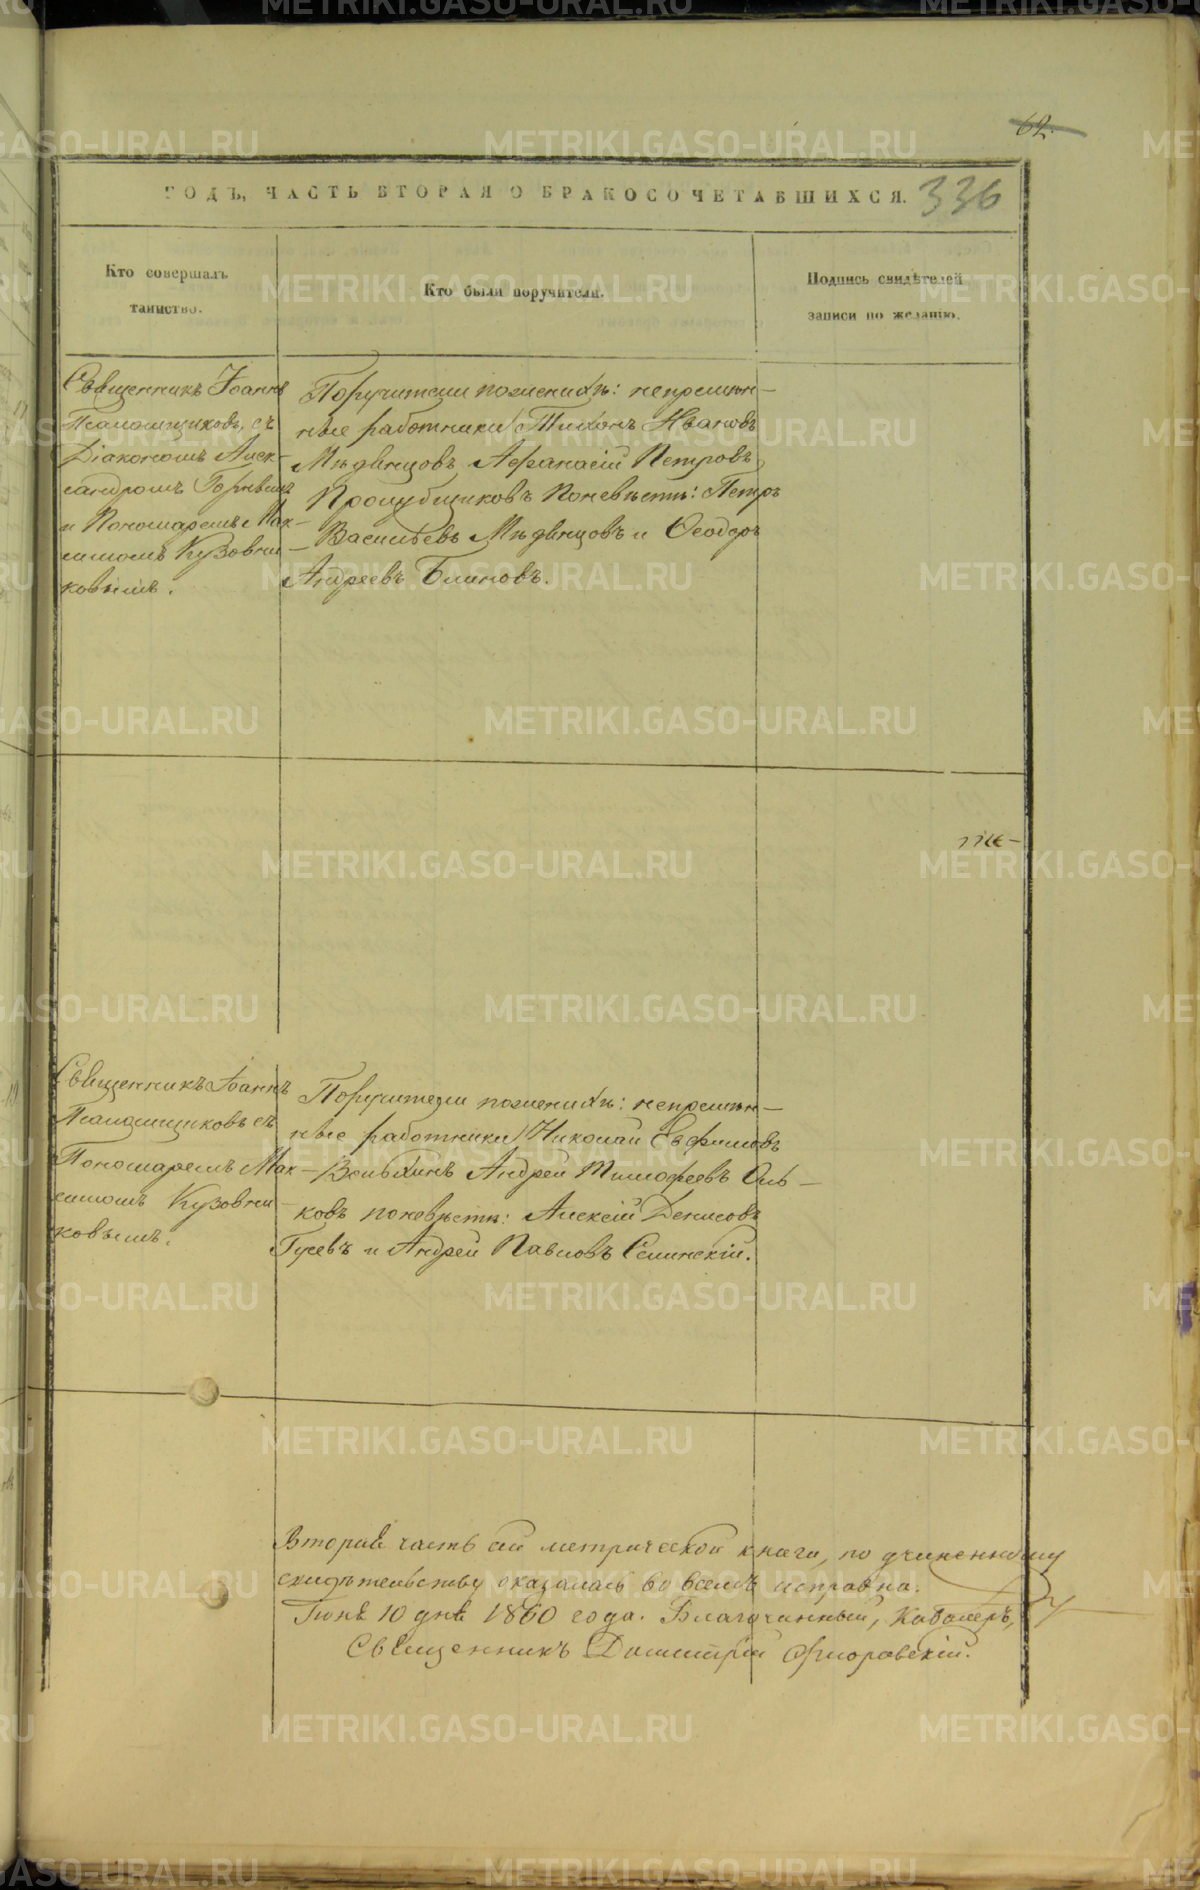 62.
ГОДЪ, ЧАСТЬ ВТОРАЯ О БРАКОСОЧЕТАВШИХСЯ. 336
Кто совершалъ
таинство.
Кто были поручители.
Подпись свидѣтелей
записи по желанію.
Священникъ Іоаннъ
Псаломщиковъ, съ
Діакономъ Алек-
сандромъ
и Пономаремъ Мак-
симомъ Кузовни-
ковымъ.
Поручители по женихѣ: непремѣн-
ные работники Тихонъ Ивановъ
Мѣдвенцовъ Афанасій Петровъ
Пролубщиковъ По невѣстѣ: Петръ
Васильевъ Мѣдвенцовъ и Ѳеодоръ
Андреевъ Блиновъ.
Священникъ Іоаннъ
Псаломщиковъ съ
Пономаремъ Мак-
симомъ Кузовни-
ковымъ.
Поручители по женихѣ: непремѣн-
ные работники Николай Евфимовъ
Андрей Тимофеевъ
ковъ по невѣстѣ: Алексій Денисовъ
Гусевъ и Андрей Павловъ Селинскій.
Вторая часть сей метрической книги, по учиненному
свидѣтельству оказалась во всемъ исправна.
Іюня 10 дня 1860 года. Благочинный, Кавалеръ,
Священникъ Димитрій Флоровскій.
METRIKI.GASO-URAL.RU